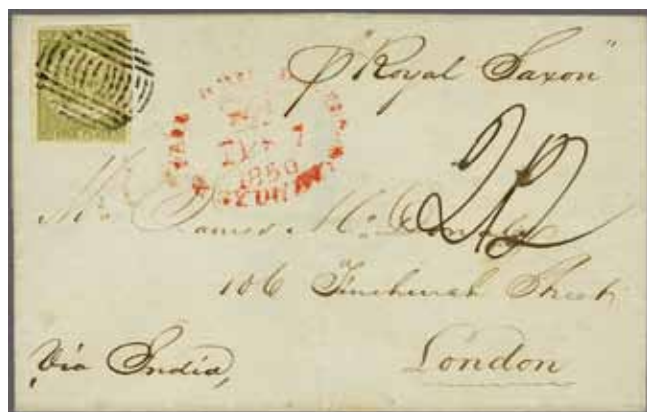 p "Royal Saxon"
7
1850
SYDNEY
Mr. James Mc
2/2
106 Fenchurch Street
London
Via India